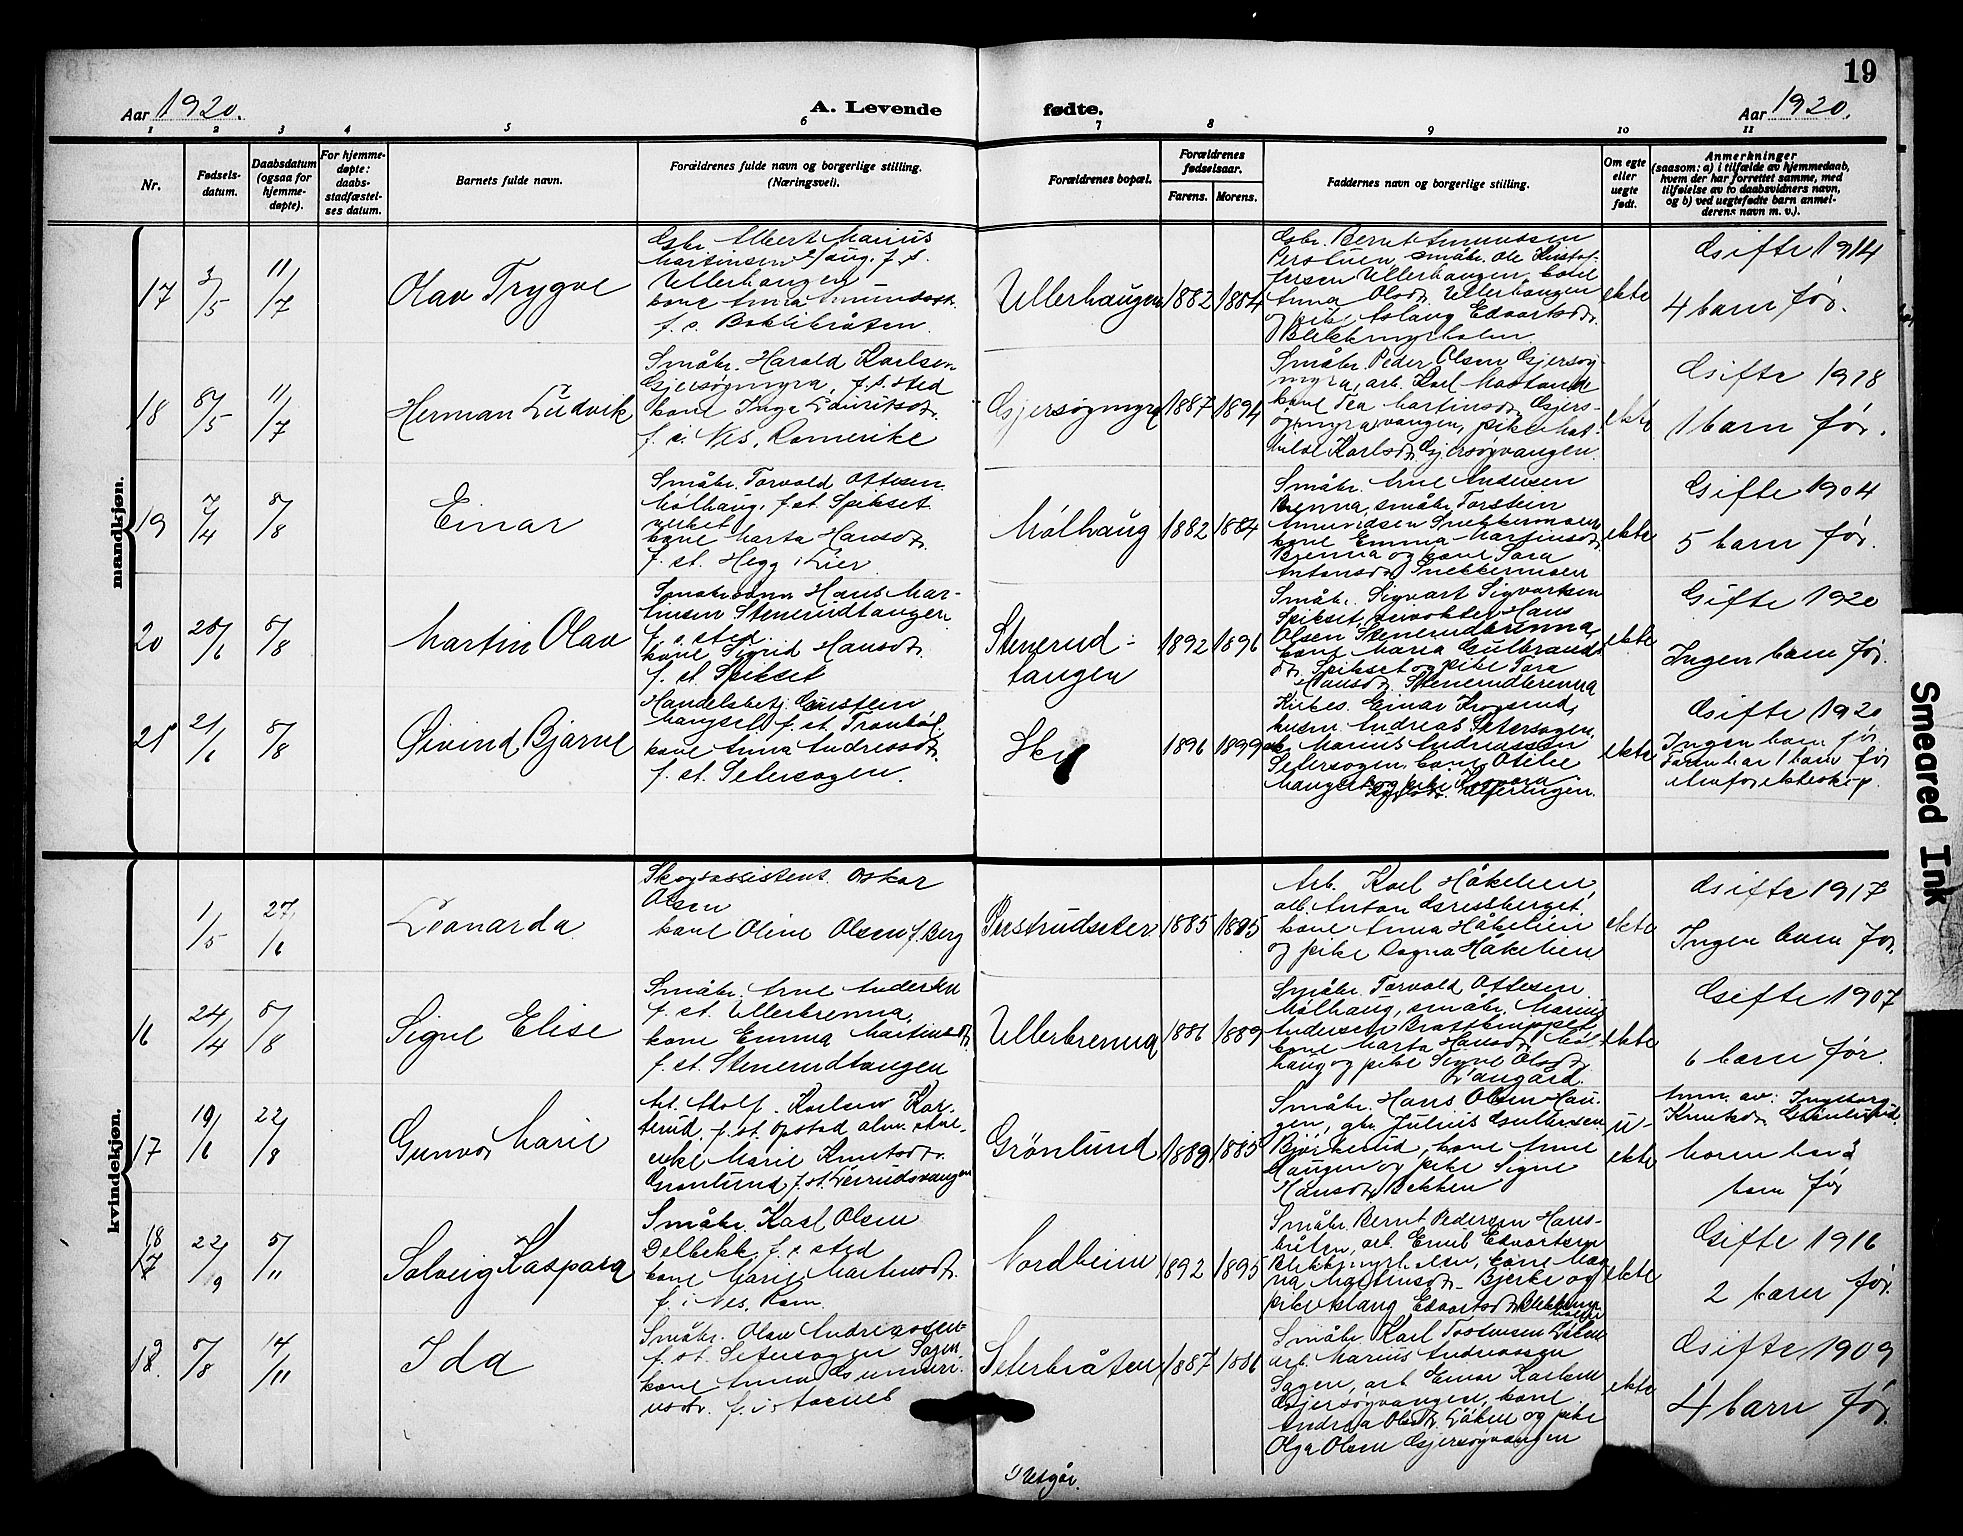 19
Aar 1920.
A. Levende
fødte.
Aar 1920.
1 2 3 4 5 6 7 8 9 10 11
Nr.
Fødsels-
datum.
Daabsdatum
(ogsaa for
hjemme-
døpte).
For hjemme-
døpte:
daabs-
stadfæstel-
ses datum.
Barnets fulde navn.
Forældrenes fulde navn og borgerlige stilling.
(Næringsvei).
Forældrenes bopæl.
Forældrenes
fødselsaar.
Farens. Morens.
Faddernes navn og borgerlige stilling.
Om egte
eller
uegte
født.
Anmerkninger
(saasom: a) i tilfælde av hjemmedaab,
hvem der har forrettet samme, med
tilføielse av to daabsvidners navn,
og b) ved uegtefødte barn anmel-
derens navn m. v.).
mandkjøn.
17
3/5
11/7
Olav Trygve
Gbr. Albert Marius
Martinsen
Ullerhaugen
kone Anna Amundsdt.
f. s. Baklibråten.
Ullerhaugen
1882
1884
Gbr. Bernt Amundsen
småbr. Ole Kristof-
fersen Ullerhaugen, kone
Anna Olsdt. Ullerhaugen
og pike Aslaug Edvartsdt.
Blekkmyrholm
ekte
Gifte 1914
4 barn før.
18
8/5
11/7
Herman Ludvik
Småbr. Harald Karlsen
Gjersøgmyra, f. s. sted
kone Inga Lauritsdt.
f. i Nes, Romerike
Gjersøgmyra
1887
1894
Småbr. Peder Olsen Gjersøg-
myra, arb. Karl
kone Tea Martinsdt. Gjers-
øgmyravangen, pike Mat-
hilde Karlsdt. Gjersøgvangen.
ekte
Gifte 1918
1 barn før.
19
7/4
8/8
Einar
Småbr. Torvald Ottesen
Mølhaug, f. st. Spikset
kone Marta Hansdt.
f. st. Hegg i Lier
Mølhaug
1882
1884
Småbr. Arne Andersen
Brenna, småbr. Torstein
Amundsen Snekkermoen
kone Emma Martinsdt.
Brenna og kone Sara
Antonsdt. Snekkermoen
ekte
Gifte 1904
5 barn før.
20
8/8
Martin Olav
Hans Mar-
tinsen Stenerudtangen
f. s. sted
kone Sigrid Hansdt.
f. st. Spikset
Stenerud-
tangen
1892
1896
Småbr. Sigvart Sigvartsen
Spikset, Hans
Olsen Stenerudbrenna,
kone Maria Gulbrands-
dt. Spikset og pike Tora
Hansdt. Stenerudbrenna
ekte
Gifte 1920
Ingen barn før.
21
21/6
8/8
Øivind Bjarne
Handelsbetj. Gustein
Mangset, f. st.
kone Anna Andreasdt.
f. st. Setersagen.
1896
1899
Einar Krogsrud,
Andreas Setersagen,
Marius Andreassen
Setersagen, kone Otelie
Mangset og pike
ekte
Gifte 1920
Ingen barn før
Faren har 1 barn før
utenfor ekteskap.
kvindekjøn.
1/5
27/6
Leonarda
Skogsassistent Oskar
Olsen
kone Oline Olsen f. Berg
1885
1895
Arb. Karl Håkelien,
arb. Anton Gressberget,
kone Anna Håkelien
og pike Ragna Håkelien
ekte
Gifte 1917
Ingen barn før.
16
24/4
8/8
Signe Elise
Småbr. Arne Andersen
f. st. Ullerbrenna,
kone Emma Martinsdt.
f. st. Stenerudtangen
Ullerbrenna
1886
1889
Småbr. Torvald Ottesen
Mølhaug, småbr. Marius
Andersen
kone Marta Hansdt. Møl-
haug og pike Signe Olsdt.
ekte
Gifte 1907
6 barn før.
17
19/6
22/8
Gunvor Marie
Arb. Adolf Karlsen
f. st. Opstad
Marie Knutsdt.
Grønlund f. st.
Grønlund
1889
1885
Småbr. Hans Olsen Hau-
gen, gbr. Julius Gulbransen
Bjørkerud, kone Anne
Haugen og pike Signe
Hansdt. Bekken
u-
ekte
Anm. av: Ingeborg
Knutsdt. Grønlund.
barn før
18
17
22/9
5/11
Solveig Kaspara
Småbr. Karl Olsen
Delbekk f. s. sted
kone Marie Martinsdt.
f. i Nes, Rom.
Nordheim
1892
1895
Småbr. Bernt Pedersen Hans-
bråten, arb. Emil Edvartsen
kone Mag-
na Martinsdt. Bjerke og
pike Aslaug Edvartsdt.
ekte
Gifte 1916
2 barn før.
18
8/8
14/11
Ida
Småbr. Olav Andreassen
f. st. Setersagen
kone Anna
f. i
Seterbråten
1887
1886
Småbr. Karl Torstensen Løken
arb. Marius Andreassen
Sagen, arb. Einar Karlsen
Gjersøgvangen, kone
Andrea Olsdt. Løken og pike
Olga Olsen Gjersøgvangen
ekte
Gifte 1909
4 barn før.
1) Utgår.
Smeared Ink